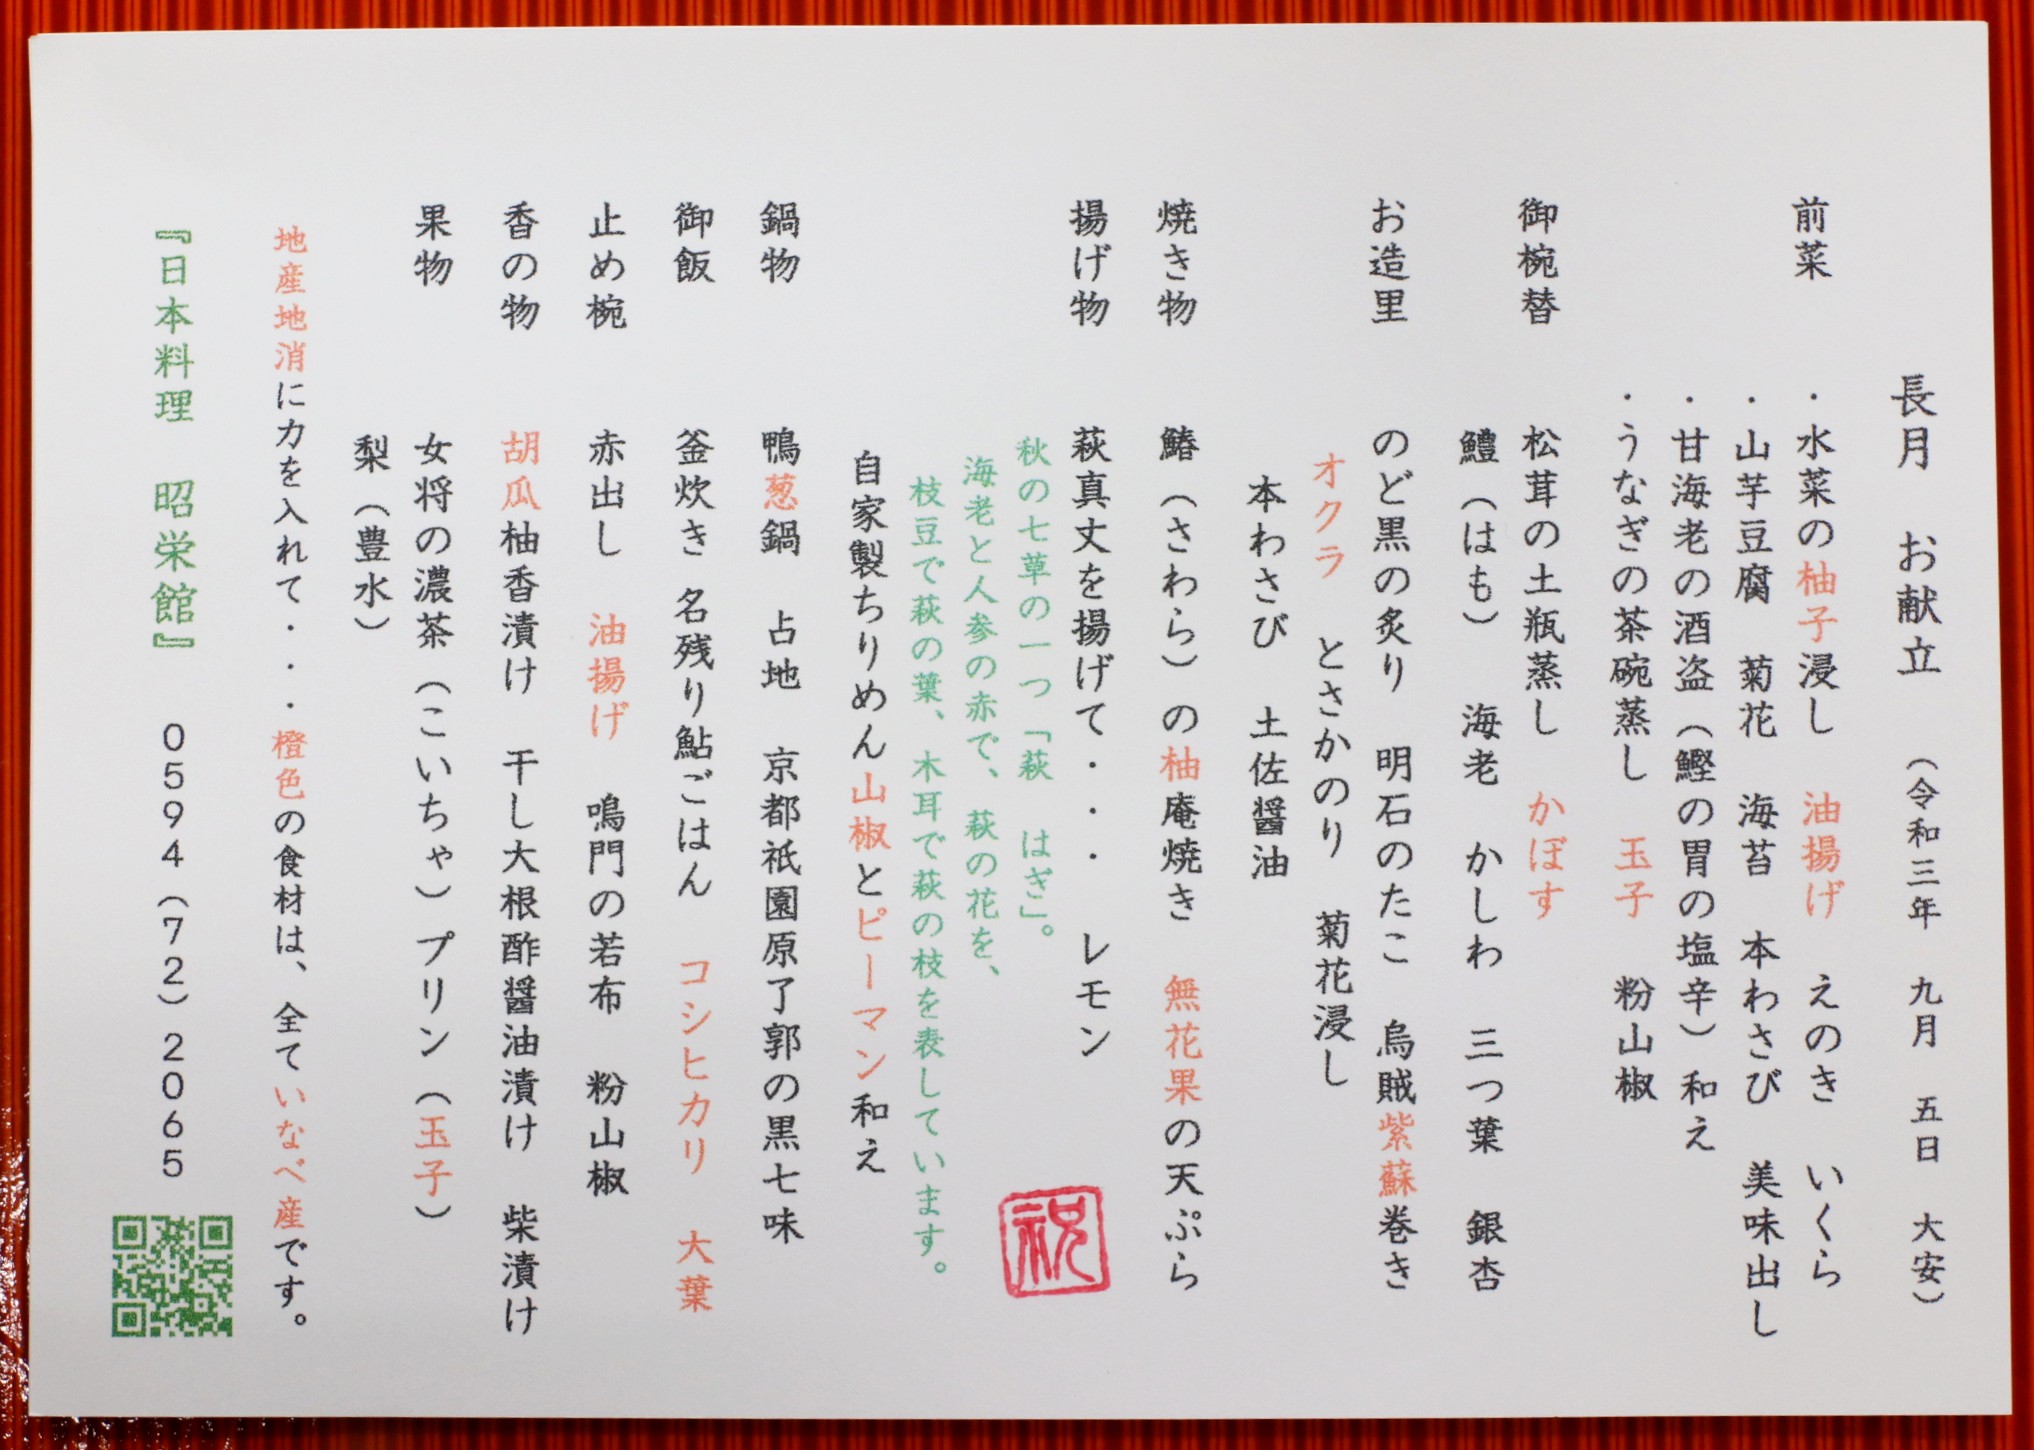 長月　お献立　（令和三年　九月　五日　大安）
前菜　・水菜の柚子浸し　油揚げ　えのき　いくら
・山芋豆腐　菊花　海苔　本わさび　美味出し
・甘海老の酒盗（鰹の胃の塩辛）和え
・うなぎの茶碗蒸し　玉子　粉山椒
御椀替　松茸の土瓶蒸し　かぼす
鱧（はも）　海老　かしわ　三つ葉　銀杏
お造里　のど黒の炙り　明石のたこ　烏賊紫蘇巻き
オクラ　とさかのり　菊花浸し
本わさび　土佐醤油
焼き物　鰆（さわら）の柚庵焼き　無花果の天ぷら
揚げ物　萩真丈を揚げて・・・　レモン
秋の七草の一つ「萩　はぎ」。
海老と人参の赤で、萩の花を、
枝豆で萩の葉、木耳で萩の枝を表しています。
自家製ちりめん山椒とピーマン和え
鍋物　鴨葱鍋　占地　京都祇園原了郭の黒七味
御飯　釜炊き　名残り鮎ごはん　コシヒカリ　大葉
止め椀　赤出し　油揚げ　鳴門の若布　粉山椒
香の物　胡瓜柚香漬け　干し大根酢醤油漬け　柴漬け
果物　女将の濃茶（こいちゃ）プリン（玉子）
梨（豊水）
地産地消に力を入れて・・・橙色の食材は、全ていなべ産です。
『日本料理　昭栄館』　0594（72）2065
祝